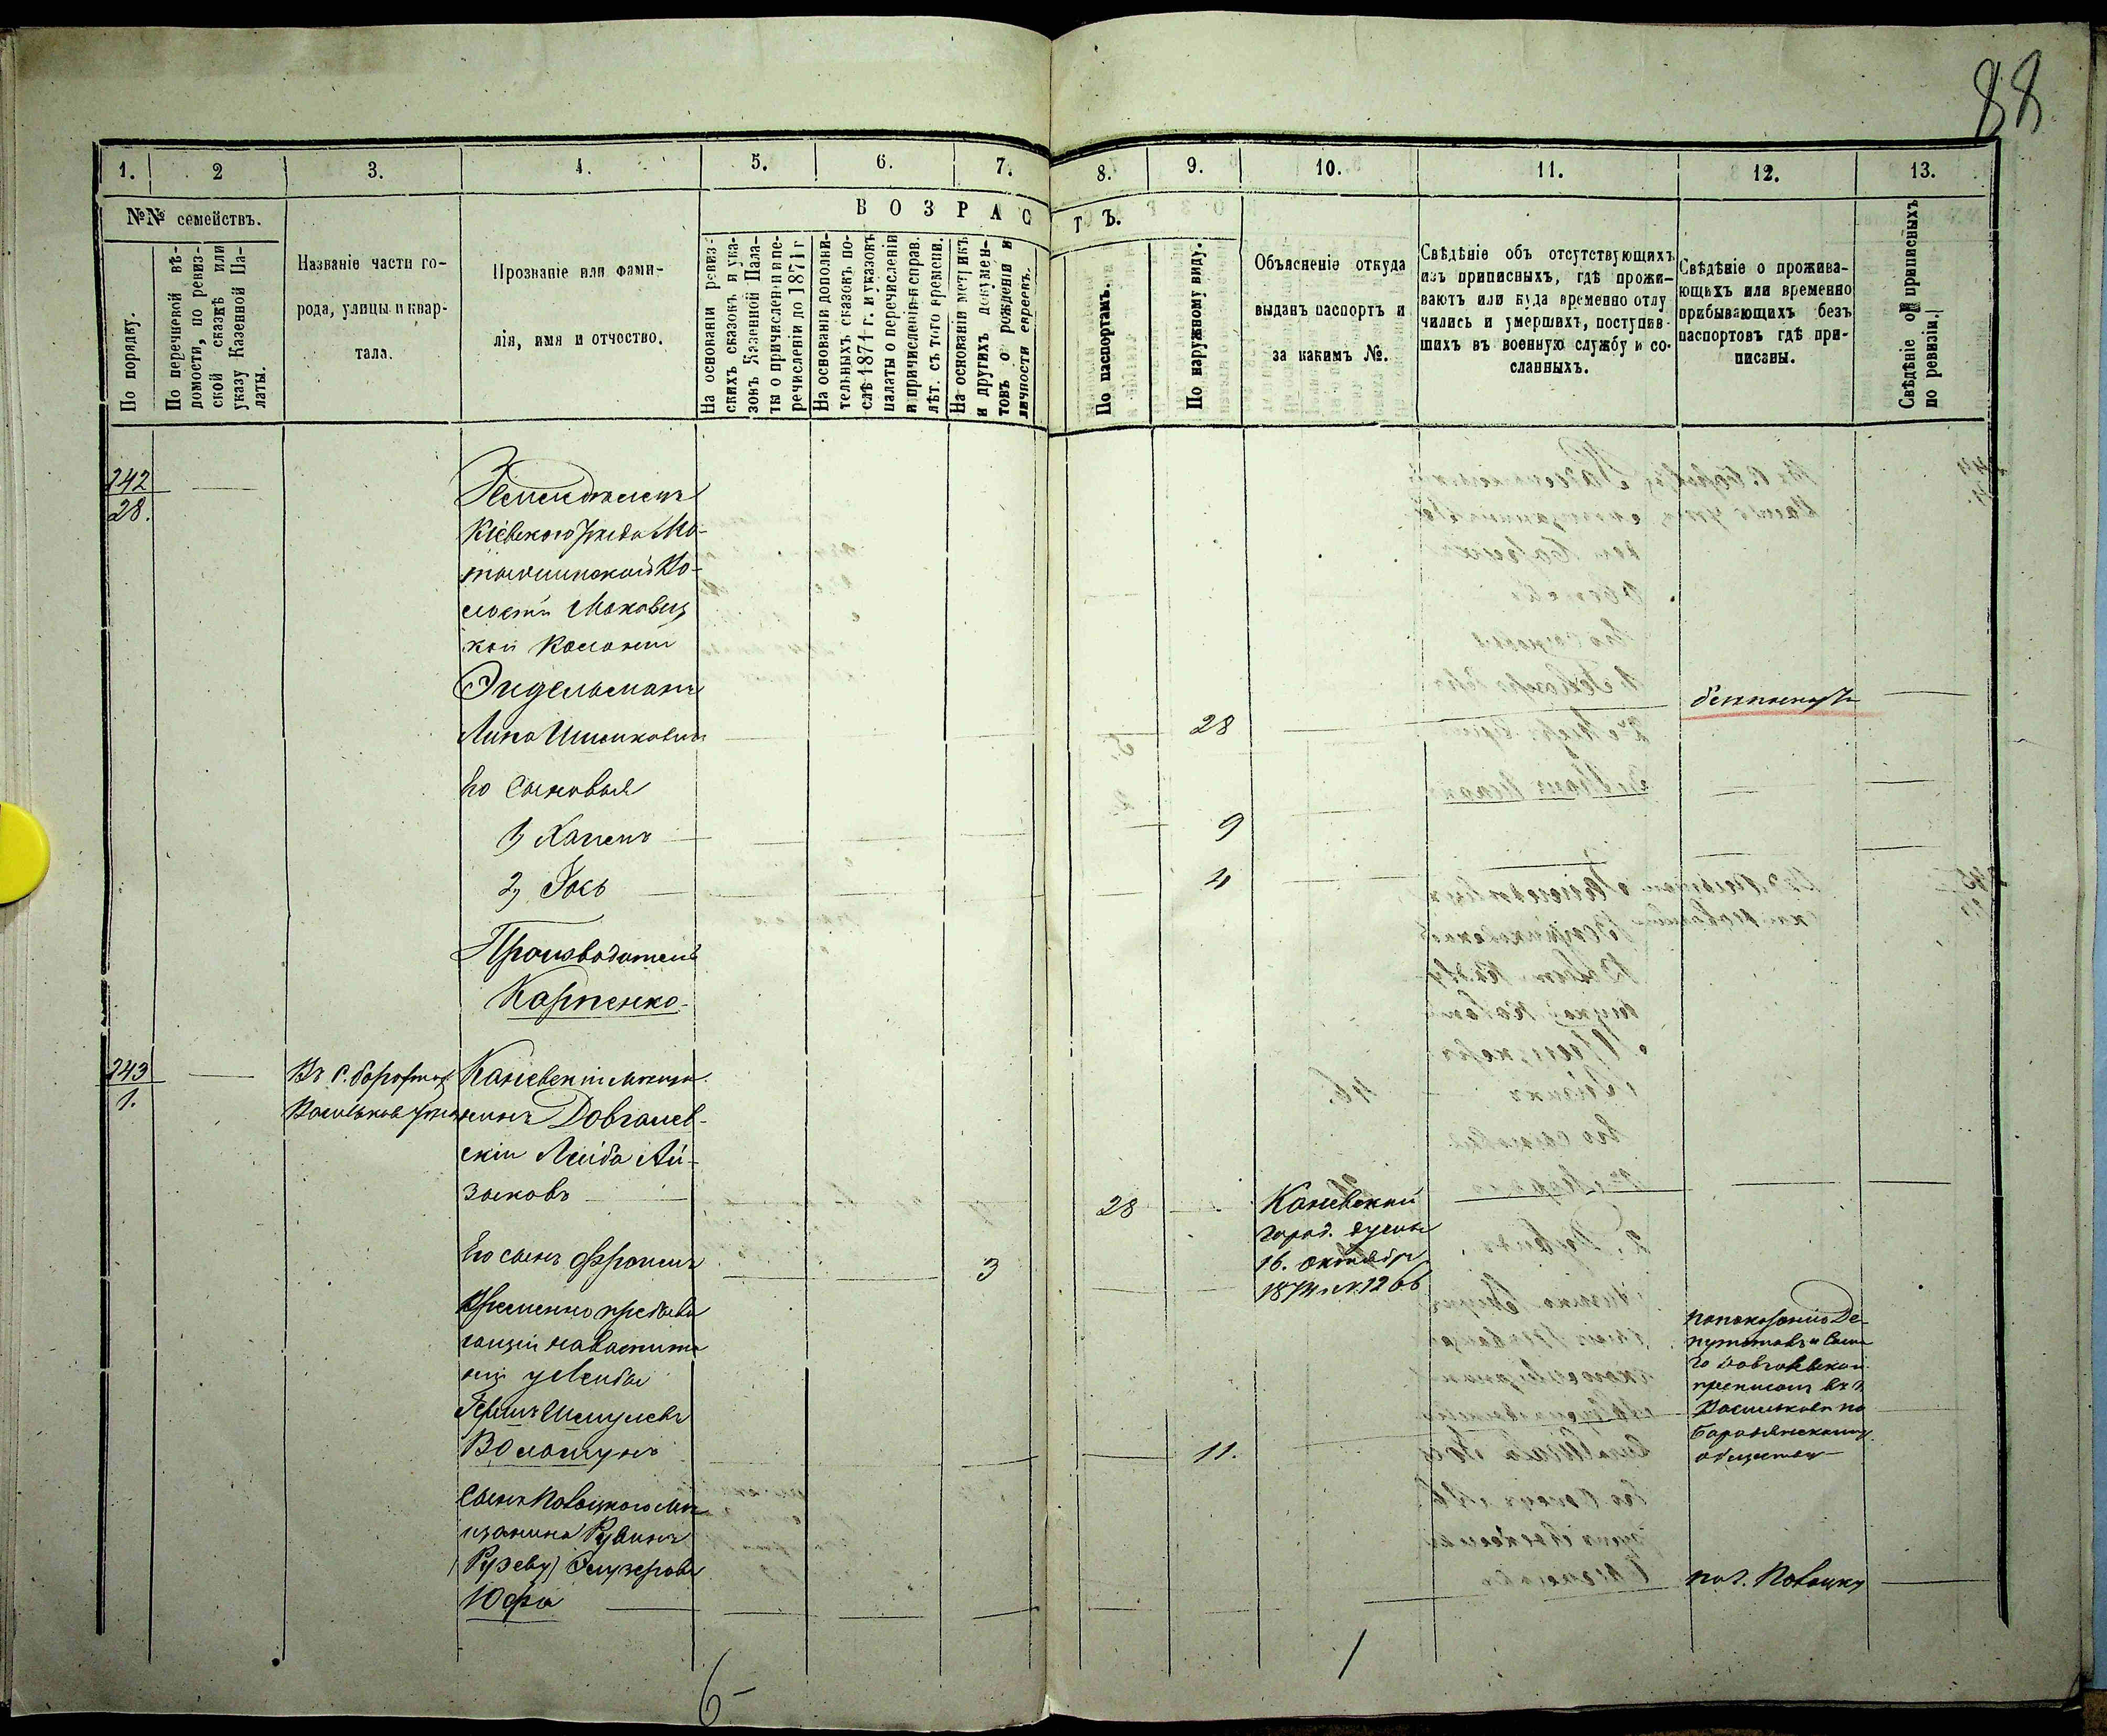 88
1. 2 3. 4. 5. 6. 7. 8. 9. 10. 11. 12. 13.
№№ семействъ.
В О З Р А С Т Ъ.
По порядку.
По перечневой вѣ-
домости, по ревиз-
ской сказкѣ или
указу Казенной Па-
латы.
Названіе части го-
рода, улицы и квар-
тала.
Прозваніе или фами-
лія, имя и отчество.
На основаніи ревиз-
скихъ сказокъ и ука-
зовъ Казенной Пала-
ты о причисленіи и пе-
речисленіи до 1871 г
На основаніи дополни-
тельныхъ сказокъ по-
слѣ 1871 г. и указовъ
палаты о перечисленіи
и причисленіи исправ.
лѣт. съ того времени.
На основаніи метрикъ
и другихъ докумен-
товъ о рожденіи и
личности евреевъ.
По паспортамъ.
По наружному виду.
Объясненіе откуда
выданъ паспортъ и
за какимъ №.
Свѣдѣніе объ отсутствующихъ
изъ приписныхъ, гдѣ прожи-
ваютъ или куда временно отлу
чились и умершихъ, поступив-
шихъ въ военную службу и со-
сланныхъ.
Свѣдѣніе о прожива-
ющихъ или временно
прибывающихъ безъ
паспортовъ гдѣ при-
писаны.
Свѣдѣніе о приписныхъ
по ревизіи.
242
28.
Земледѣлецъ
Кіевскаго уѣзда Мо-
тыжинской Во-
лости Маковиц
кой Колоніи
Эндельманъ
28
Его Сыновья
1) Хаимъ 9
2) Гось 4
Производитель
Карпенко
243
1.
Въ с.
Васильков
Каневскій мѣща-
нинъ Довгалев-
скій Лейба Ай-
зиковъ 28
Каневской
город. думы
16. октября
1874 г. № 1266
Его сынъ Фроимъ 3
Временно пребыва
ющій на воспита
ніи у Лейбы
Гершъ Шмулевъ
Волошунъ 11.
по показанію Де-
путатовъ и само
го Довгалевскаго
приписанъ въ г.
Васильковъ по
обществу
Сынъ Полоцкого мѣ-
щанина Рувинъ
Юфа
по г. Полоцку
6-
1